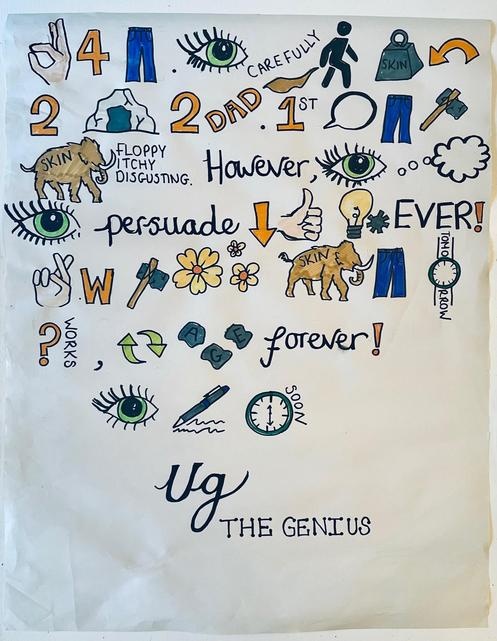 4 . CAREFULLY SKIN
2 2 DAD. 1ST
SKIN FLOPPY
ITCHY
DISGUSTING. However,
persuade EVER!
W SKIN TOMORROW
? WORKS, AGE forever!
SOON
Ug
THE GENIUS